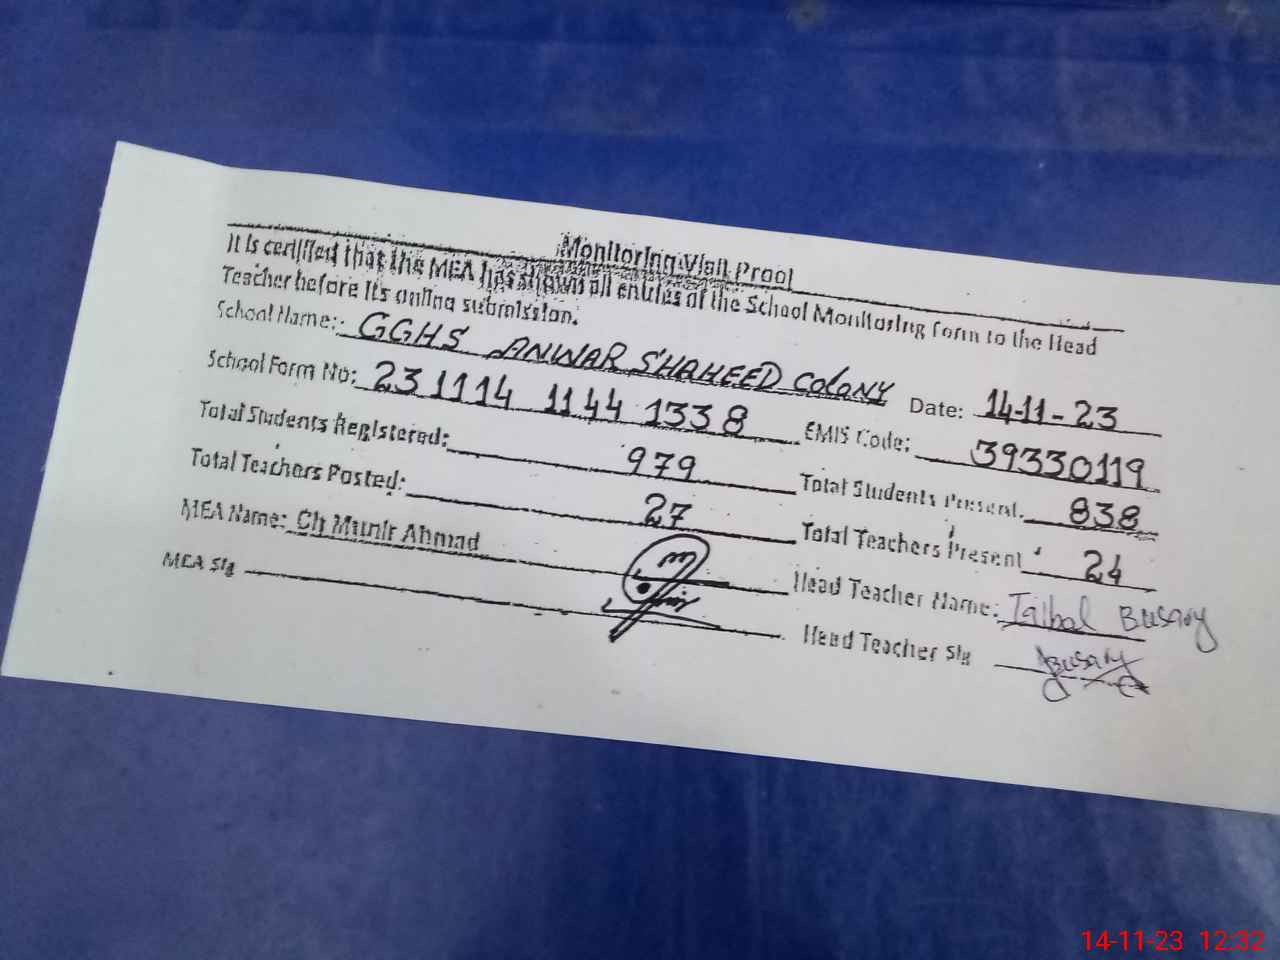 Monitoring Visit Proof
It is certified that the MEA has shown all entries of the School Monitoring form to the Head
Teacher before its online submission.
School Name: GGHS ANWAR SHAHEED COLONY Date: 14-11-23
School Form No: 231114 1144 1338 EMIS Code: 39330119
Total Students Registered: 979 Total Students Present. 838
Total Teachers Posted: 27 Total Teachers Present 24
MEA Name: Ch Munir Ahmad Head Teacher Name: Busary
MEA Sig Head Teacher Sig Busary
14-11-23 12:32